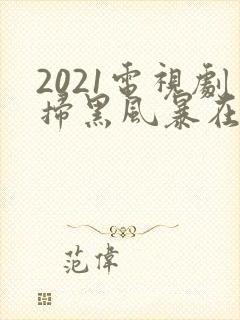 2021電視劇
掃黑風暴在
范偉